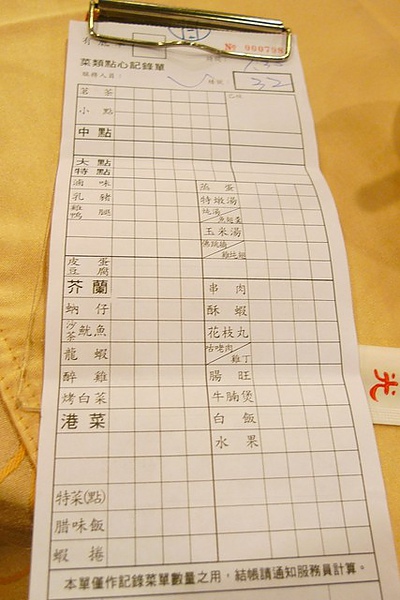 № 990798
菜類點心記錄單
服務人員：
32
茗茶
小點
中點
大點
特點
滷味 蒸蛋
乳豬 特燉湯
雞鴨腿 燉湯 魚翅羹
玉米湯
皮蛋豆腐
芥蘭 串肉
蚋仔 酥蝦
沙茶魷魚 花枝丸
龍蝦 咕咾肉 雞丁
醉雞 腸旺
烤白菜 牛腩煲
港菜 白飯
水果
特菜(點)
腊味飯
蝦捲
本單僅作記錄菜單數量之用，結帳請通知服務員計算。